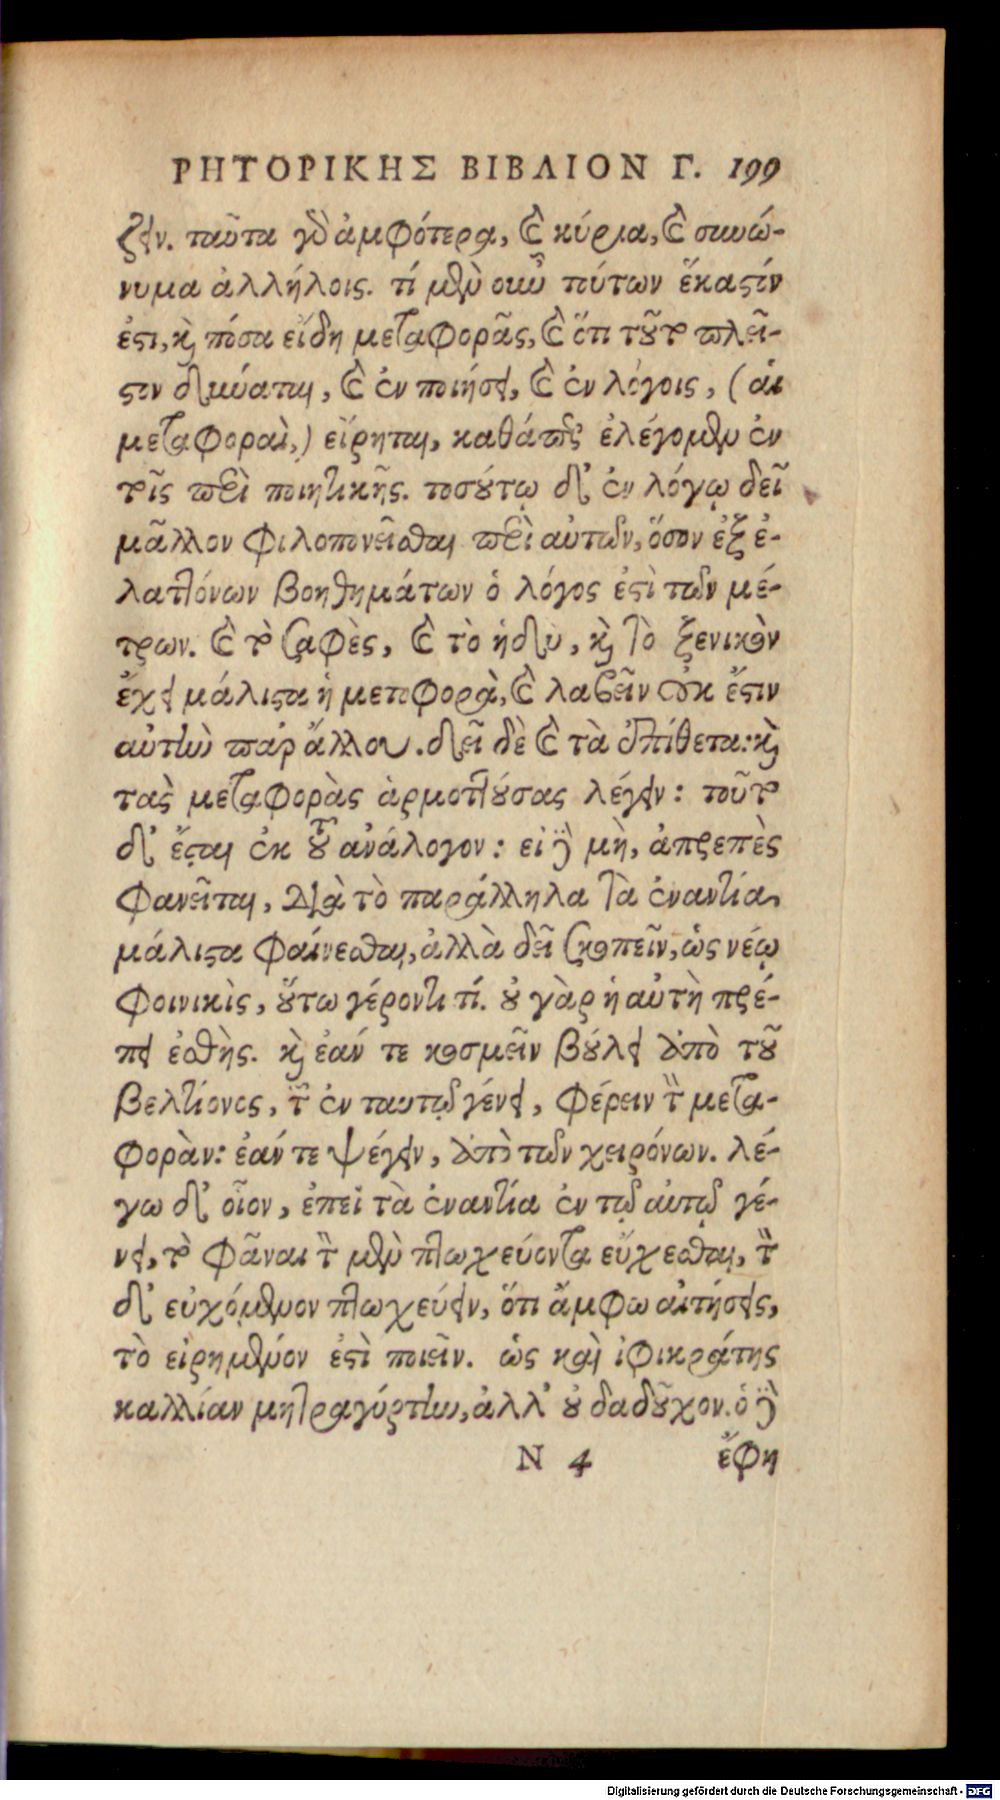 ΡΗΤΟΡΙΚΗΣ ΒΙΒΛΙΟΝ Γ. 199
ζειν. ταῦτα γὰρ ἀμφότερα, καὶ κύρια, καὶ συνώ-
νυμα ἀλλήλοις. τί μὲν οὖν τούτων ἕκαστόν
ἐστι, καὶ πόσα εἴδη μεταφορᾶς, καὶ ὅτι τοῦτο πλεῖ-
στον δύναται, καὶ ἐν ποιήσει, καὶ ἐν λόγοις, (αἱ
μεταφοραὶ,) εἴρηται, καθάπερ ἐλέγομεν ἐν
τοῖς περὶ ποιητικῆς. τοσούτῳ δ' ἐν λόγῳ δεῖ
μᾶλλον φιλοπονεῖσθαι περὶ αὐτῶν, ὅσον ἐξ ἐ-
λαττόνων βοηθημάτων ὁ λόγος ἐστὶ τῶν μέ-
τρων. καὶ τὸ σαφὲς, καὶ τὸ ἡδὺ, καὶ τὸ ξενικὸν
ἔχει μάλιστα ἡ μεταφορὰ, καὶ λαβεῖν οὐκ ἔστιν
αὐτὴν παρ' ἄλλου. δεῖ δὲ καὶ τὰ ἐπίθετα: καὶ
τὰς μεταφορὰς ἁρμοττούσας λέγειν: τοῦτο
δ' ἔσται ἐκ τοῦ ἀνάλογον: εἰ δὲ μὴ, ἀπρεπὲς
φανεῖται, διὰ τὸ παράλληλα τὰ ἐναντία
μάλιστα φαίνεσθαι, ἀλλὰ δεῖ σκοπεῖν, ὡς νέῳ
φοινικὶς, οὕτω γέροντι τί. οὐ γὰρ ἡ αὐτὴ πρέ-
πει ἐσθὴς. καὶ ἐάν τε κοσμεῖν βούλει ἀπὸ τοῦ
βελτίονος, τῶν ἐν ταυτῷ γένει, φέρειν τὴν μετα-
φορὰν: ἐάν τε ψέγειν, ἀπὸ τῶν χειρόνων. λέ-
γω δ' οἷον, ἐπεὶ τὰ ἐναντία ἐν τῷ αὐτῷ γέ-
νει, τὸ φᾶναι τὸν μὲν πτωχεύοντα εὔχεσθαι, τὸν
δ' εὐχόμενον πτωχεύειν, ὅτι ἄμφω αἰτήσεις,
τὸ εἰρημένον ἐστὶ ποιεῖν. ὡς καὶ ἰφικράτης
καλλίαν μητραγύρτην, ἀλλ' οὐ δαδοῦχον. ὁ δὲ
Ν 4 ἔφη
Digitalisierung gefördert durch die Deutsche Forschungsgemeinschaft - DFG